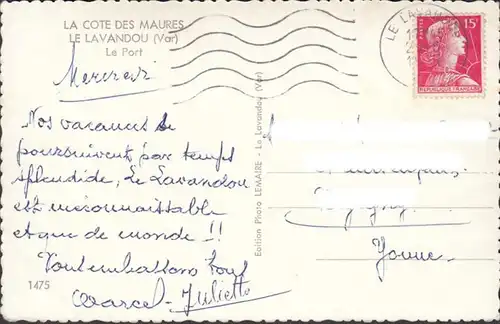 LA COTE DES MAURES
LE LAVANDOU (Var)
Le Port
Mercredi
Nos vacances se
poursuivent par temps
splendide, Le Lavandou
est méconnaissable
et que de monde !!
tous
Marcel - Juliette
1475
Edition Photo LEMAIRE - Le Lavandou (Var)
LE LAVANDOU
POSTES
15F
REPUBLIQUE FRANÇAISE
Yonne